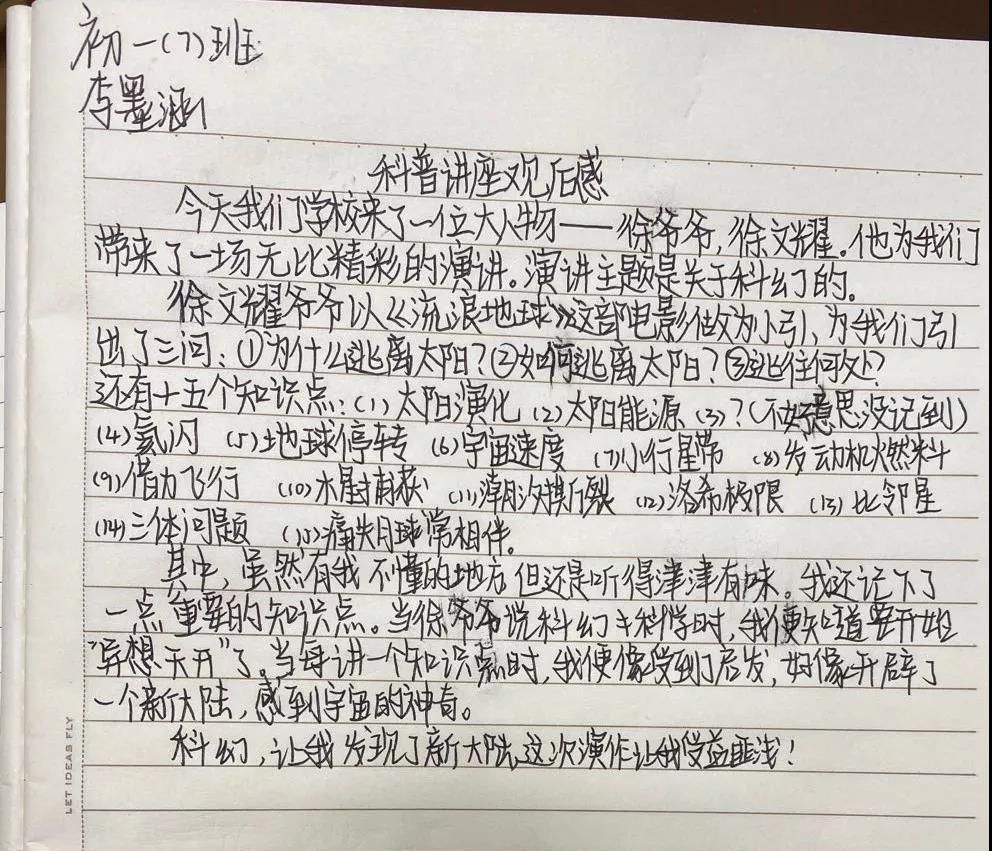 初一(7)班
李墨涵
科普讲座观后感
今天我们学校来了一位大人物——徐爷爷,徐文耀。他为我们
带来了一场无比精彩的演讲。演讲主题是关于科幻的。
徐文耀爷爷以《流浪地球》这部电影做为小引,为我们引
出了三问:①为什么逃离太阳?②如何逃离太阳?③逃往何处?
还有十五个知识点:(1)太阳演化 (2)太阳能源 (3)?(不好意思没记到)
(4)氦闪 (5)地球停转 (6)宇宙速度 (7)小行星带 (8)发动机燃料
(9)借力飞行 (10)木星捕获 (11)潮汐撕裂 (12)洛希极限 (13)比邻星
(14)三体问题 (15)痛失月球常相伴。
其中,虽然有我不懂的地方但还是听得津津有味。我还记下了
一点重要的知识点。当徐爷爷说科幻＋科学时,我便知道要开始
"异想天开"了。当每讲一个知识点时,我便像受到启发,好像开辟了
一个新大陆,感到宇宙的神奇。
科幻,让我发现了新大陆,这次演作让我受益匪浅!
LET IDEAS FLY